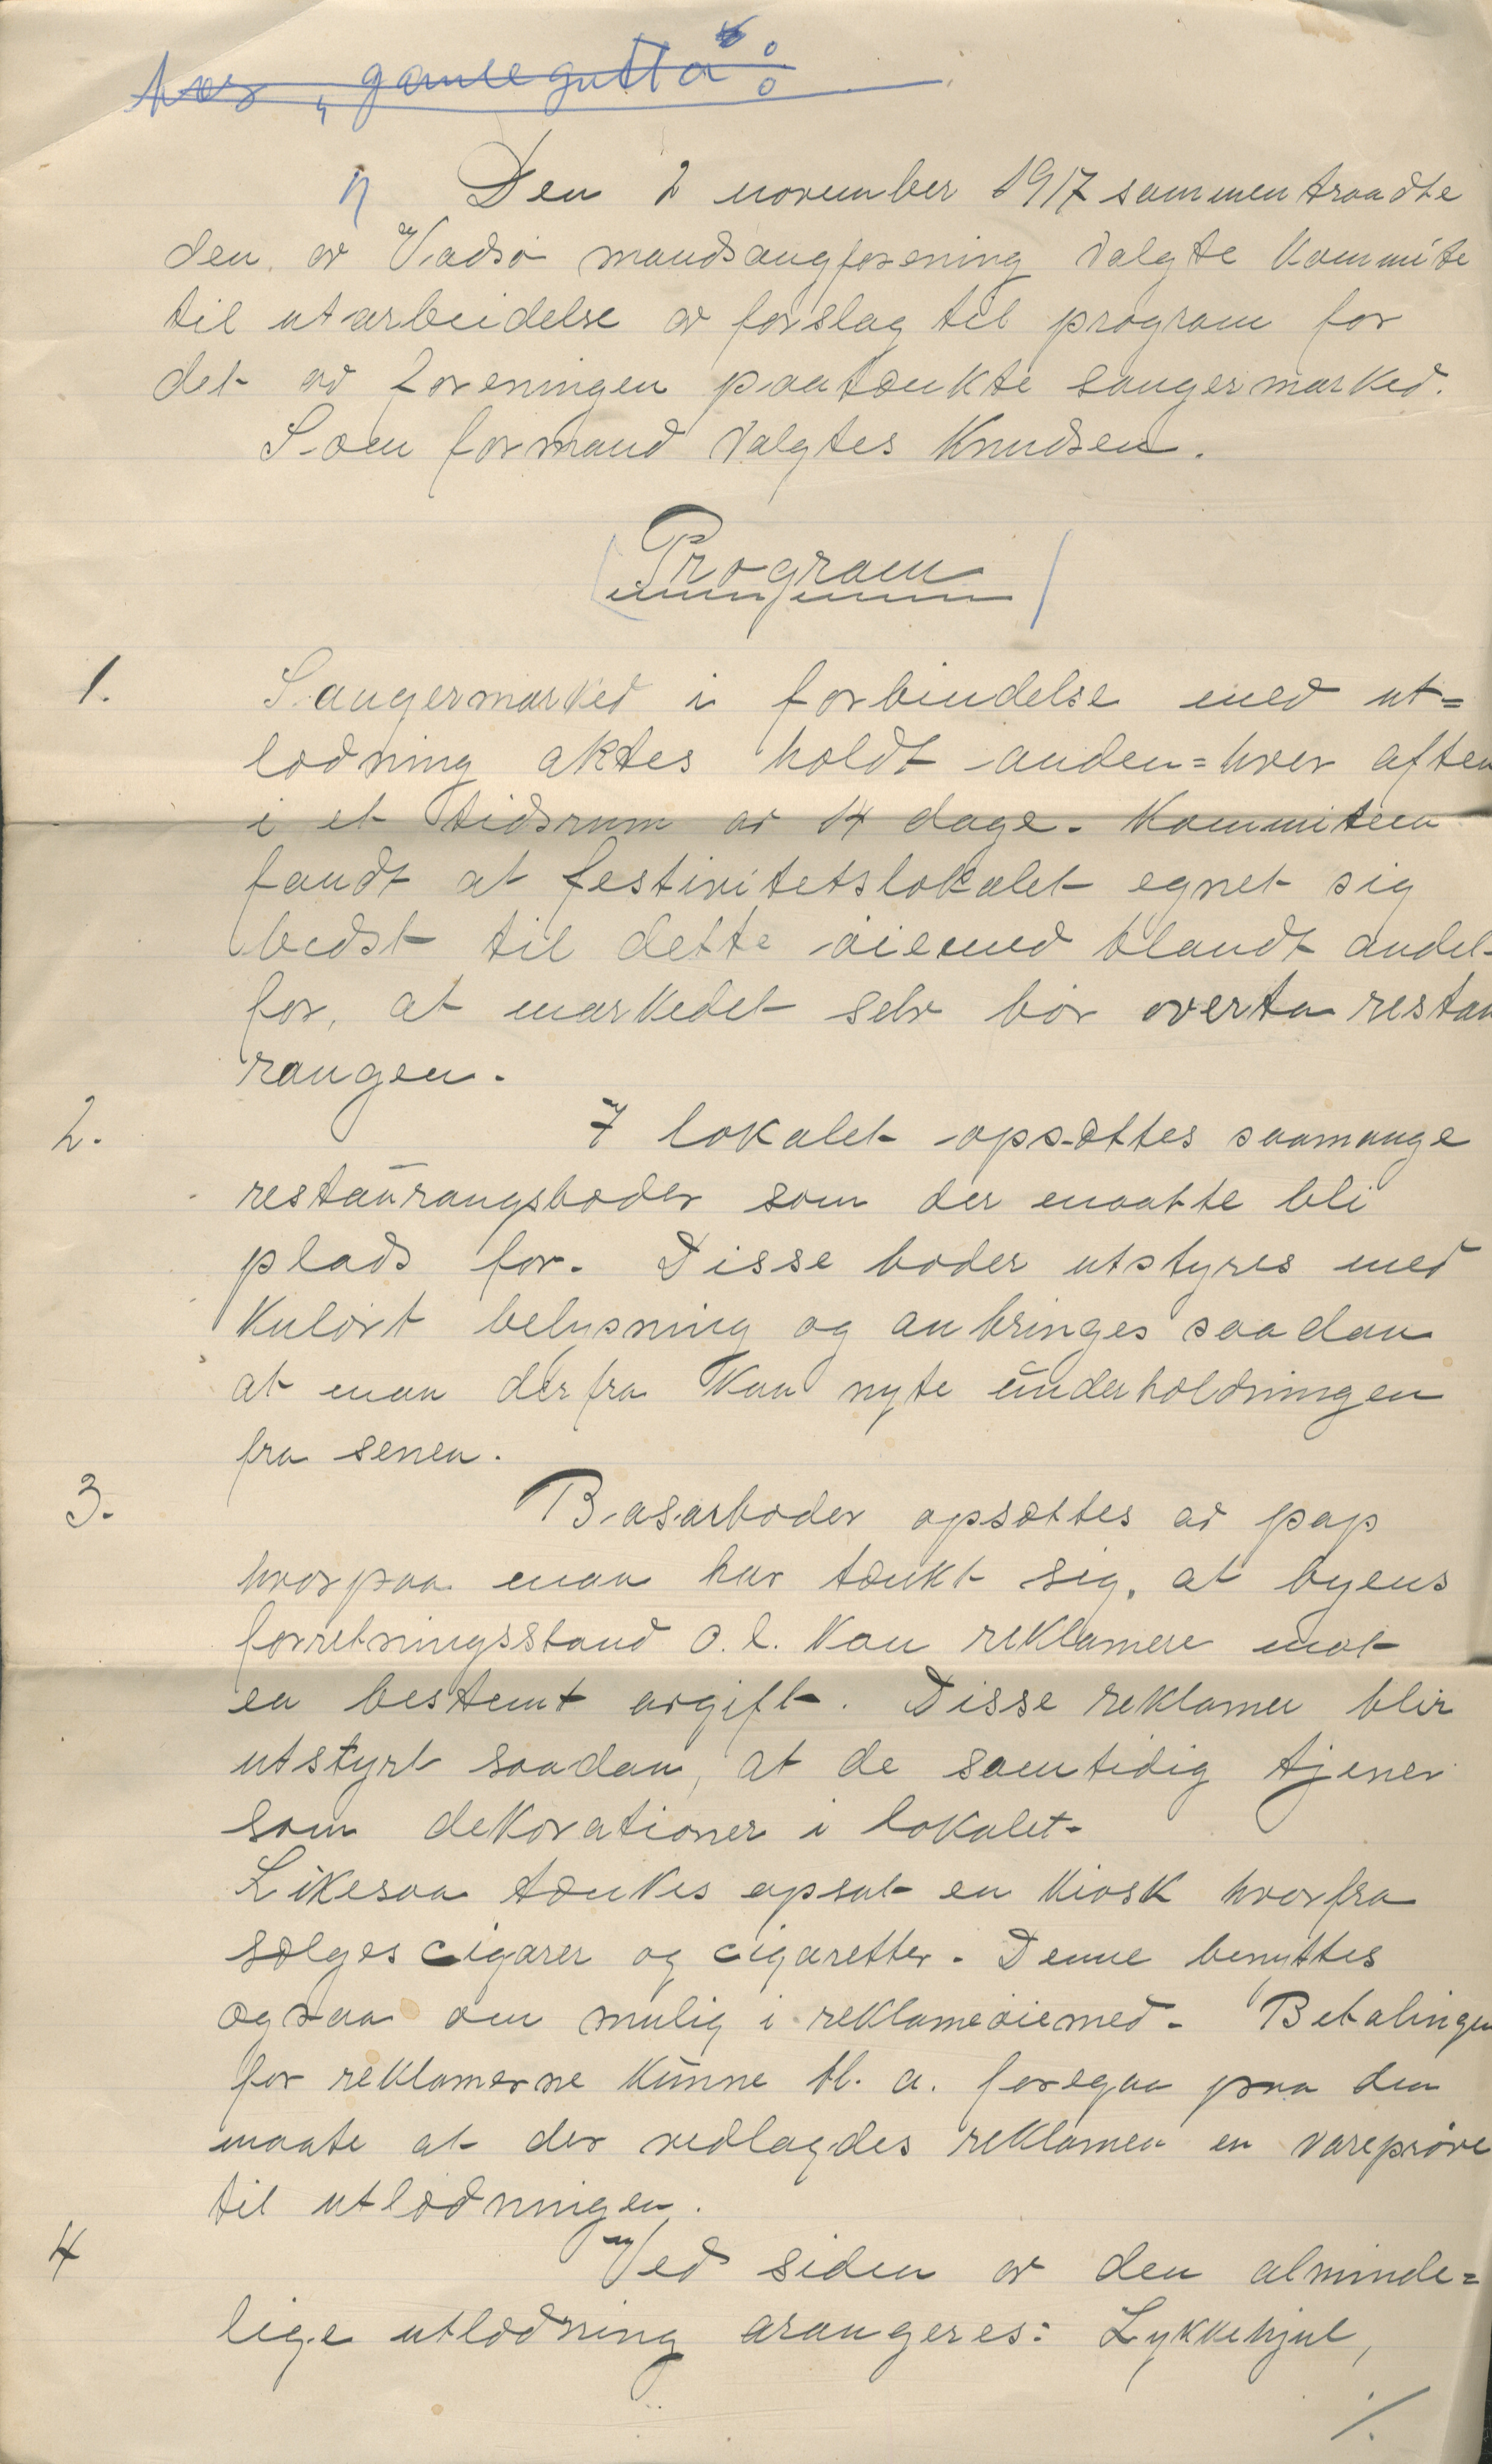 hos „gamlegutta“:
Den 2 november 1917 sammentraadte
den av Vadsø mandsangforening valgte Kommite
til utarbeidelse av forslag til program for
det av foreningen paatænkte sangermarked.
Som formand valgtes Knudsen.
Program
1. Sangermarked i forbindelse med ut=
lodning aktes holdt anden=hver aften
i et tidsrum av 14 dage. Kommiteen
fandt at festivitetslokalet egnet sig
bedst til dette øiemed blandt andet
for, at markedet selv bør overta restau
rangen.
2. I lokalet opsættes saamange
restaurangsboder som der maatte bli
plads for. Disse boder utstyres med
Kulørt belysning og anbringes saadan
at man derfra Kan nyte underholdningen
fra senen.
3. Basarboder opsættes av pap
hvorpaa man har tænkt sig, at byens
forretningsstand o.l. Kan reklamere mot
en bestemt avgift. Disse reklamer blir
utstyrt saadan, at de samtidig tjener
som dekorationer i lokalet.
Likesaa tænkes opsat en Kiosk hvorfra
sælges cigarer og cigaretter. Denne benyttes
ogsaa om mulig i reklameøiemed. Betalingen
for reklamerne Kunne bl. a. foregaa paa den
maate at der vedlagdes reklamen en vareprøve
til utlodningen.
4 Ved siden av den alminde=
lige utlodning arangeres: Lykkehjul,
./.